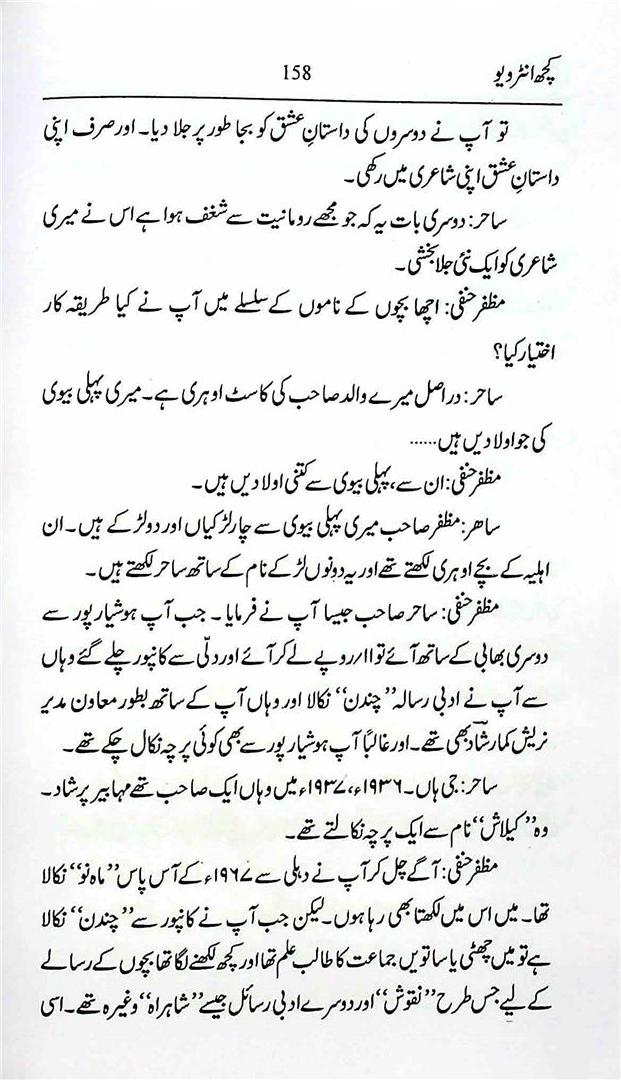 کچھ انٹرویو 158
تو آپ نے دوسروں کی داستانِ عشق کو بجا طور پر جلا دیا۔ اور صرف اپنی
داستانِ عشق اپنی شاعری میں رکھی۔
ساحر: دوسری بات یہ کہ جو مجھے رومانیت سے شغف ہوا ہے اس نے میری
شاعری کو ایک نئی جلا بخشی۔
مظفر حنفی: اچھا بچوں کے ناموں کے سلسلے میں آپ نے کیا طریقہ کار
اختیار کیا؟
ساحر: دراصل میرے والد صاحب کی کاسٹ اوہری ہے۔ میری پہلی بیوی
کی جو اولادیں ہیں......
مظفر حنفی: ان سے، پہلی بیوی سے کتنی اولادیں ہیں۔
ساھر: مظفر صاحب میری پہلی بیوی سے چار لڑکیاں اور دو لڑکے ہیں۔ ان
اہلیہ کے بچے اوہری لکھتے تھے اور یہ دونوں لڑکے نام کے ساتھ ساحر لکھتے ہیں۔
مظفر حنفی: ساحر صاحب جیسا آپ نے فرمایا۔ جب آپ ہوشیار پور سے
دوسری بھابی کے ساتھ آئے تو ۱۱/روپے لے کر آئے اور دلّی سے کانپور چلے گئے وہاں
سے آپ نے ادبی رسالہ ”چندن“ نکالا اور وہاں آپ کے ساتھ بطور معاون مدیر
نریش کمار شاد بھی تھے۔ اور غالباً آپ ہوشیار پور سے بھی کوئی پرچہ نکال چکے تھے۔
ساحر: جی ہاں۔ ۱۹۳۶ء، ۱۹۳۷ء میں وہاں ایک صاحب تھے مہابیر پرشاد۔
وہ ”کیلاش“ نام سے ایک پرچہ نکالتے تھے۔
مظفر حنفی: آگے چل کر آپ نے دہلی سے ۱۹۶۷ء کے آس پاس ”ماہ نو“ نکالا
تھا۔ میں اس میں لکھتا بھی رہا ہوں۔ لیکن جب آپ نے کانپور سے ”چندن“ نکالا
ہے تو میں چھٹی یا ساتویں جماعت کا طالب علم تھا اور کچھ لکھنے لگا تھا بچوں کے رسالے
کے لیے جس طرح ”نقوش“ اور دوسرے ادبی رسائل جیسے ”شاہراہ“ وغیرہ تھے۔ اسی